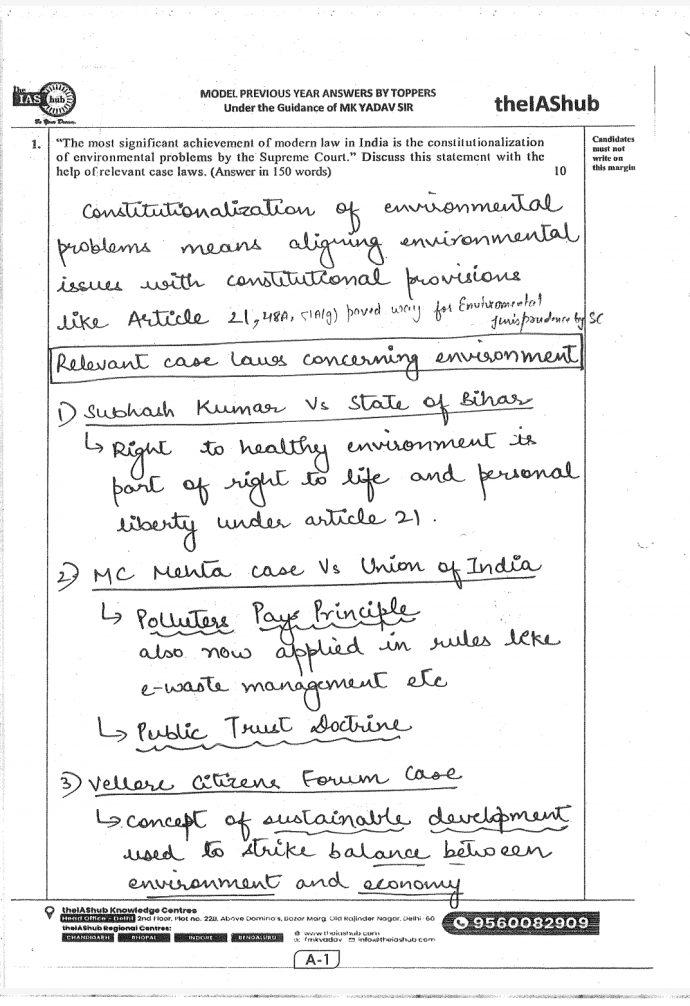 the
IAS hub
Be Your Dream.
MODEL PREVIOUS YEAR ANSWERS BY TOPPERS
Under the Guidance of MK YADAV SIR
theIAShub
1. "The most significant achievement of modern law in India is the constitutionalization
of environmental problems by the Supreme Court." Discuss this statement with the
help of relevant case laws. (Answer in 150 words) 10
Candidates
must not
write on
this margin
Constitutionalization of environmental
problems means aligning environmental
issues with constitutional provisions
like Article 21, 48A, 51A(g) paved way for Environmental
Jurisprudence by SC
Relevant case laws concerning environment
1) Subhash Kumar Vs State of Bihar
↳ Right to healthy environment is
part of right to life and personal
liberty under article 21.
2) MC Mehta case Vs Union of India
↳ Polluters Pays Principle
also now applied in rules like
e-waste management etc
↳ Public Trust Doctrine
3) Vellore Citizens Forum Case
↳ concept of sustainable development
used to strike balance between
environment and economy
theIAShub Knowledge Centres
Head Office - Delhi 2nd Floor, Plot no. 22B, Above Domino's, Bazar Marg, Old Rajinder Nagar, Delhi-60
theIAShub Regional Centres:
CHANDIGARH BHOPAL INDORE BENGALURU
www.theiashub.com
/mkyadav info@theiashub.com
9560082909
A-1